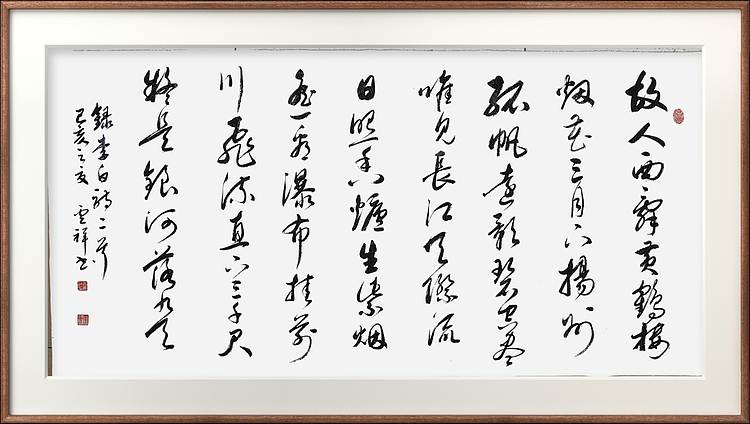 故人西辭黄鶴楼
烟花三月下揚州
孤帆遠影碧空盡
唯見長江天際流
日照香爐生紫烟
遥看瀑布挂前
川飛流直下三千尺
疑是銀河落九天
録李白詩二首
己亥之夏 雲祥書